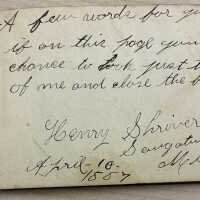 A few words for y
is on this page you
chance to look just t
of me and close the b
Henry Shriver
Saugatu
April-10-
1887